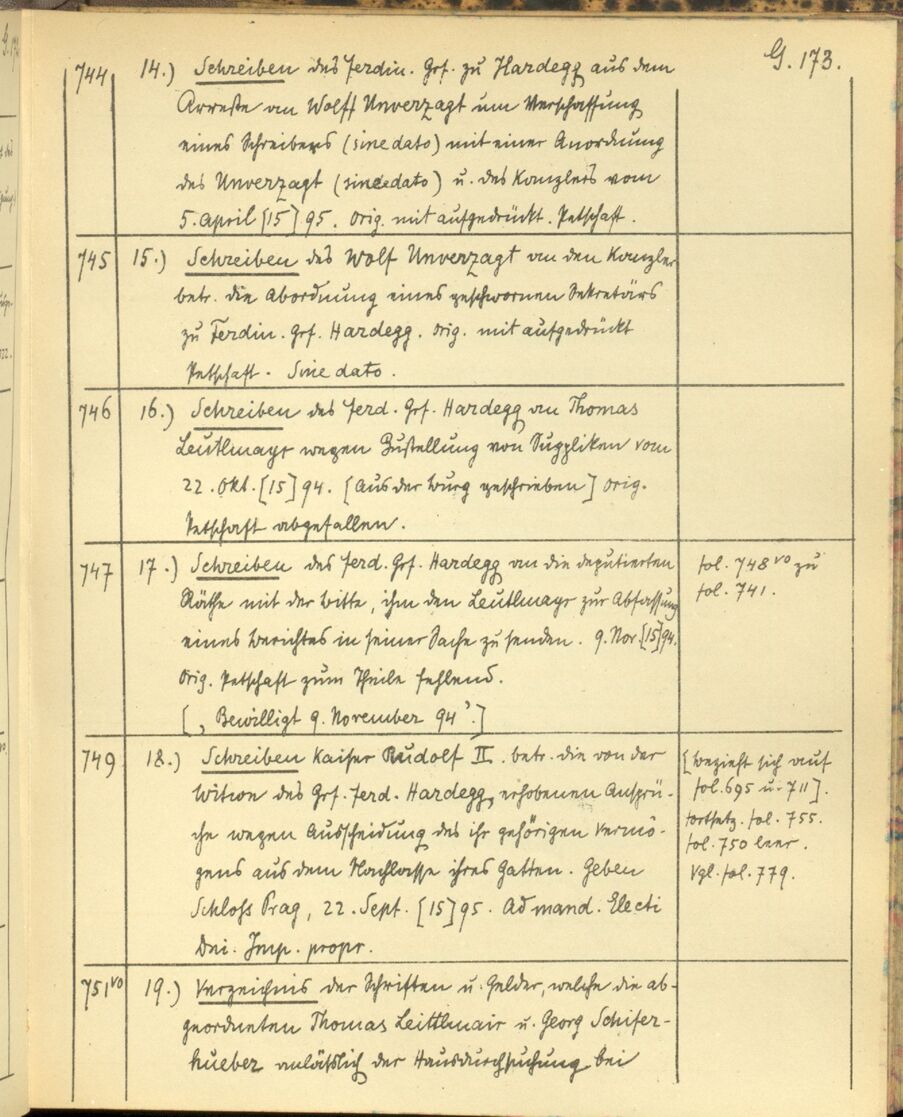 G. 173.
744 14.) Schreiben des Ferdin. Grf. zu Hardegg aus dem
Arreste an Wolff Unverzagt um Verschaffung
eines Schreibers (sine dato) mit einer Anordnung
des Unverzagt (sine dato) u. des Kanzlers vom
5. April [15]95. Orig. mit aufgedrückt. Petschaft.
745 15.) Schreiben des Wolf Unverzagt an den Kanzler
betr. die Abordnung eines geschwornen Sekretärs
zu Ferdin. Grf. Hardegg. Orig. mit aufgedrückt
Petschaft. Sine dato.
746 16.) Schreiben des Ferd. Grf. Hardegg an Thomas
Leutlmayr wegen Zustellung von Suppliken vom
22. Okt. [15]94. [Aus der Burg geschrieben] Orig.
Petschaft abgefallen.
747 17.) Schreiben des Ferd. Grf. Hardegg an die deputierten
Räthe mit der Bitte, ihm den Leutlmayr zur Abfassung
eines Berichtes in seiner Sache zu senden. 9. Nov [15]94.
Orig. Petschaft zum Theile fehlend.
[„Bewilligt 9. November 94'.]
fol. 748 vo zu
fol. 741.
749 18.) Schreiben Kaiser Rudolf II. betr. die von der
Witwe des Grf. Ferd. Hardegg, erhobenen Ansprü-
che wegen Ausscheidung des ihr gehörigen Vermö-
gens aus dem Nachlasse ihres Gatten. Geben
Schloss Prag, 22. Sept. [15]95. Ad mand. Electi
Dni. Imp. propr.
[bezieht sich auf
fol. 695 u. 711].
Fortsetz. fol. 755.
fol. 750 leer.
Vgl. fol. 779.
751 vo 19.) Verzeichnis der Schriften u. Gelder, welche die ab-
geordneten Thomas Leittlmair u. Georg Schifer-
hueber anlässlich der Hausdurchsuchung bei